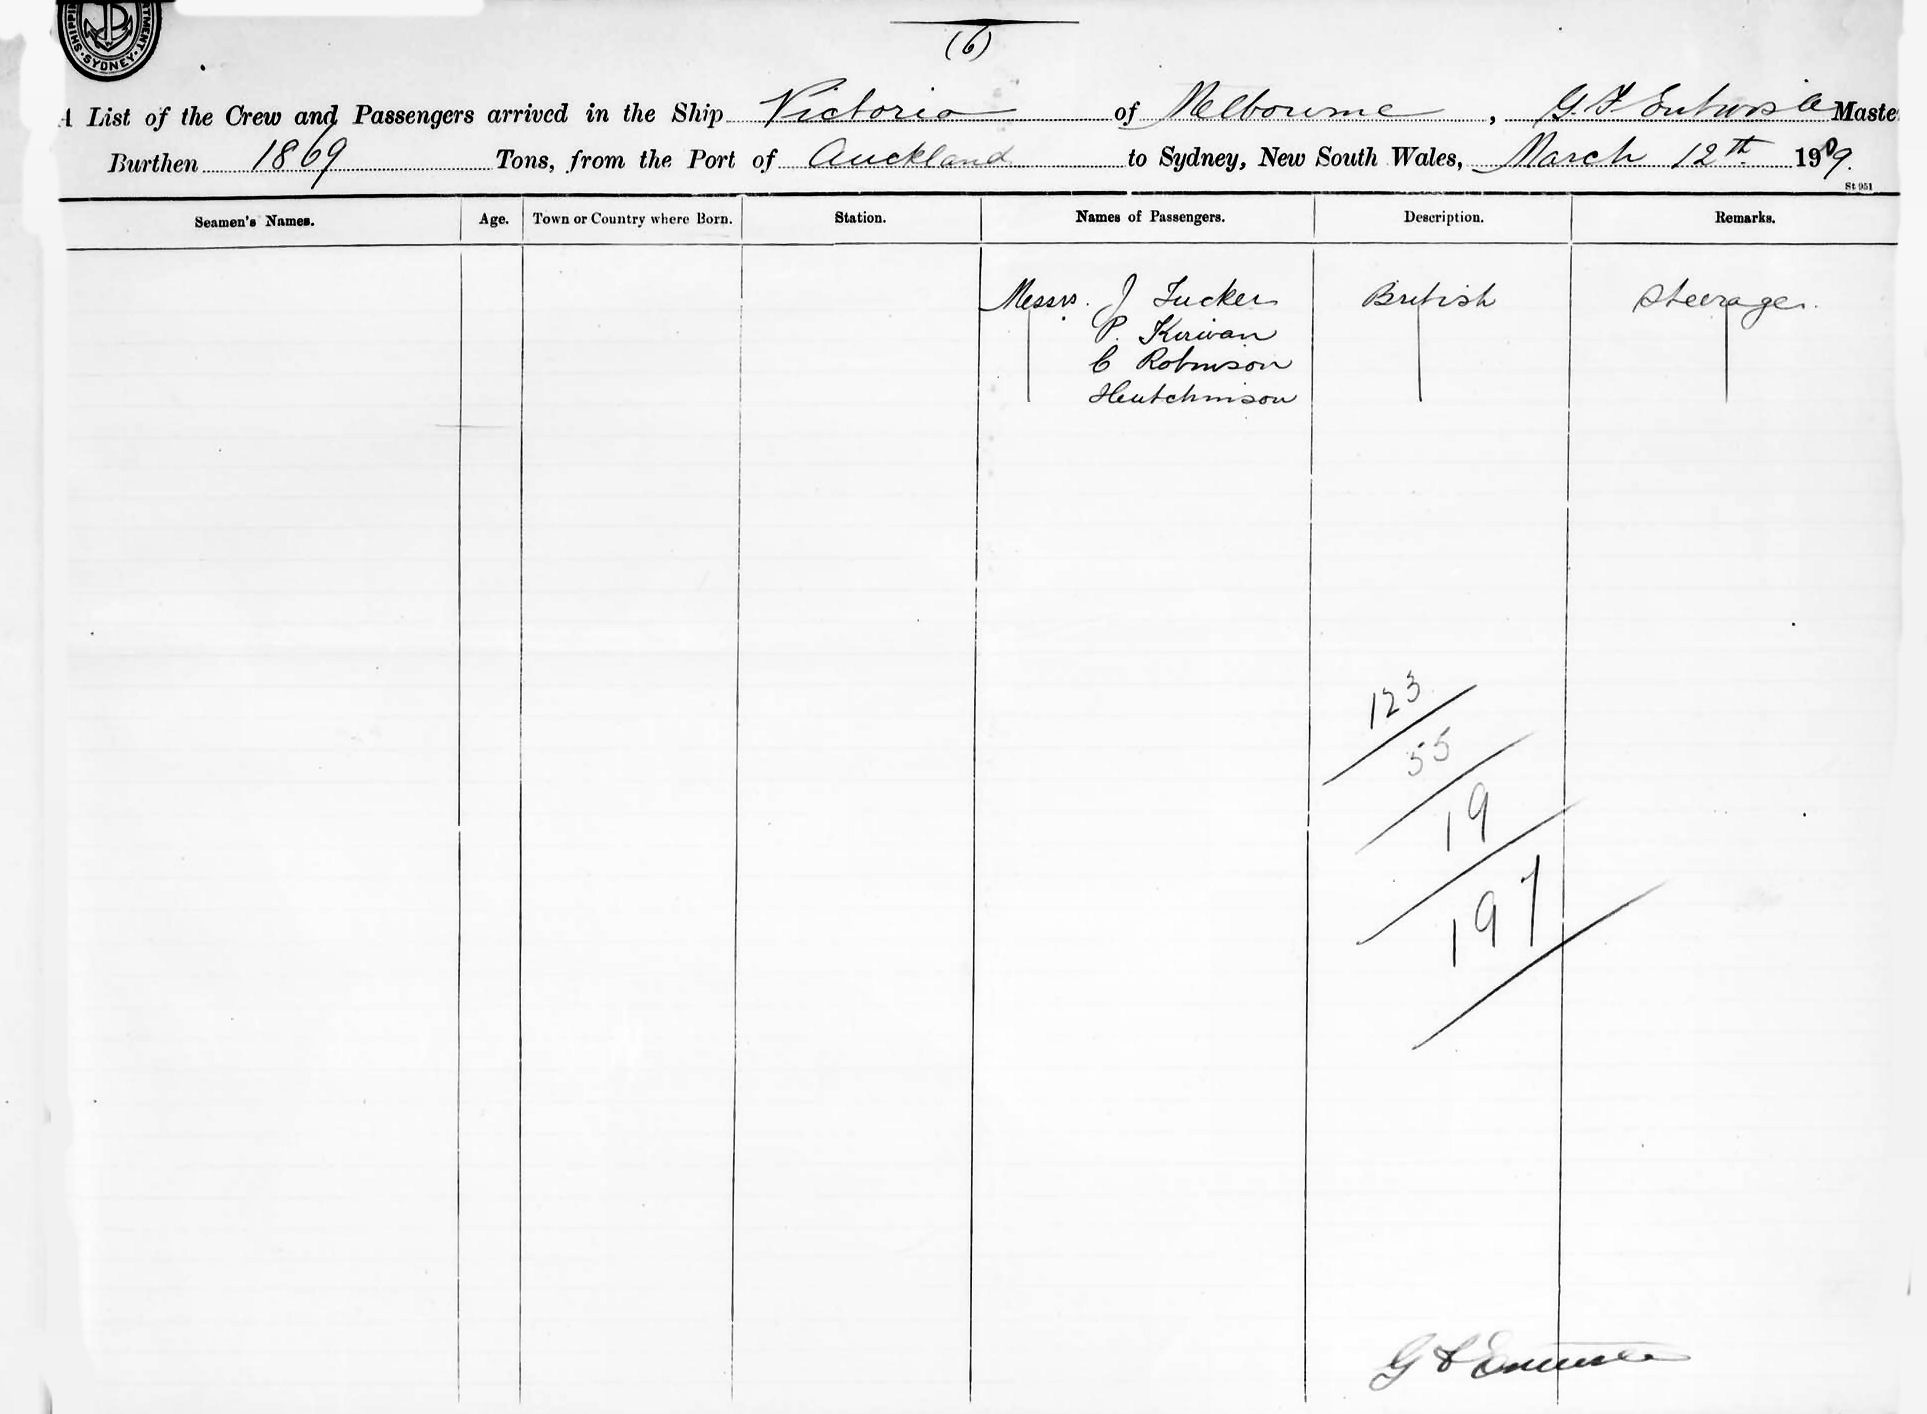 SHIPPIN
RTMENT · SYDNEY ·
(6)
A List of the Crew and Passengers arrived in the Ship Victoria of Melbourne, G. F. Entwisle Maste
Burthen 1869 Tons, from the Port of Auckland to Sydney, New South Wales, March 12th 1909.
St 951
Seamen's Names. Age. Town or Country where Born. Station. Names of Passengers. Description. Remarks.
Messrs. J Tucker British Steerage.
P. Kirwan
C Robinson
Hutchinson
123
55
19
197